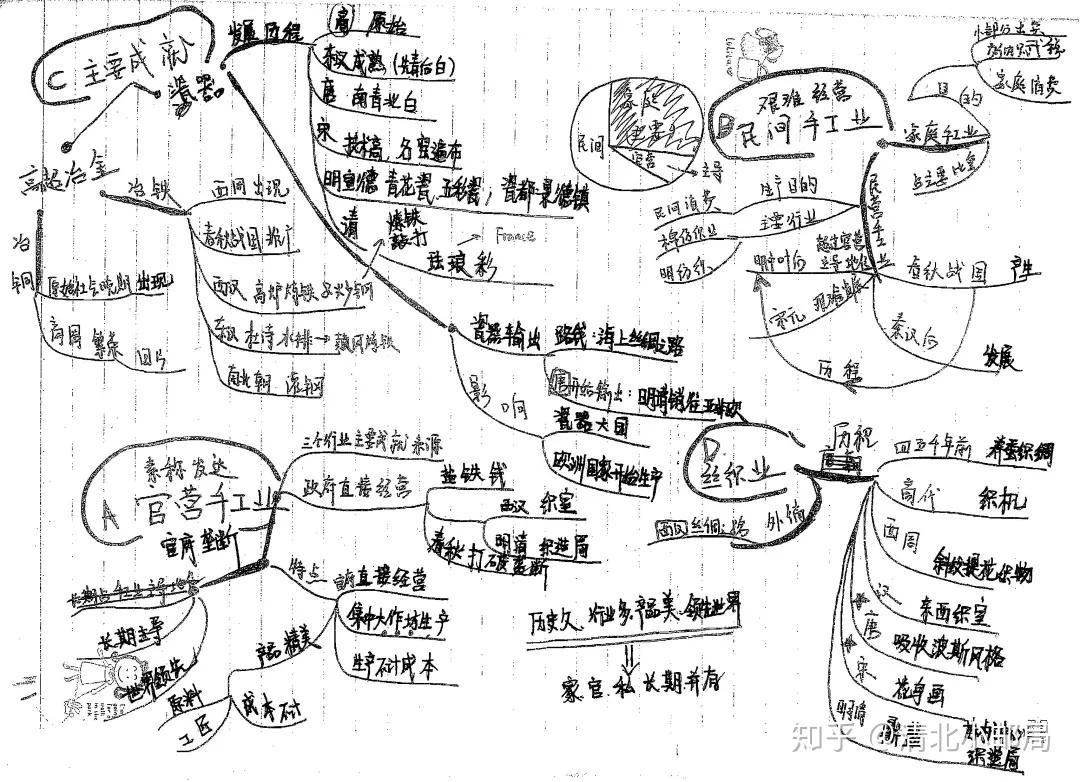 C 主要成就
瓷器
发展历程
商 原始
东汉成熟(先青后白)
唐 南青北白
宋 技术高、名窑遍布
明宣德 青花瓷、五彩瓷；瓷都:景德镇
清
珐琅彩
France
高超冶金
冶铁
西周出现
春秋战国推广
西汉 高炉炼铁 炒钢
东汉 杜诗水排→鼓风炼铁
南北朝 灌钢
冶铜
原始社会晚期出现
商周 繁荣
瓷器输出
路线:海上丝绸之路
唐开始输出:明清销往亚非欧
影响
瓷器大国
欧洲国家开始生产
艰难经营
B 民间手工业
民间
家庭
民营
官营
主导
家庭手工业
目的
小部分出卖
家庭消费
占主要比重
民营手工业
生产目的
民间消费
主要行业
棉纺织业
明中叶后
超过官营
主导地位
宋元
艰难发展
春秋战国 产生
秦汉后
发展
历程
素称发达
A 官营手工业
三个行业主要成就来源
政府直接经营
盐铁钱
西汉 织室
明清 织造局
官府垄断
长期占手工业主导地位
长期主导
世界领先
特点
官府直接经营
集中大作坊生产
生产不计成本
产品精美
原料
工匠
成本不计
历史久、行业多、产品美、领先世界
家、官、私 长期并存
D 丝织业
历程
四五千年前 养蚕织绸
商代
织机
西周
斜纹提花织物
汉
东西织室
唐
吸收波斯风格
宋
花鸟画
明清
织造局
外销
西汉丝绸:
知乎 @清北小邮局